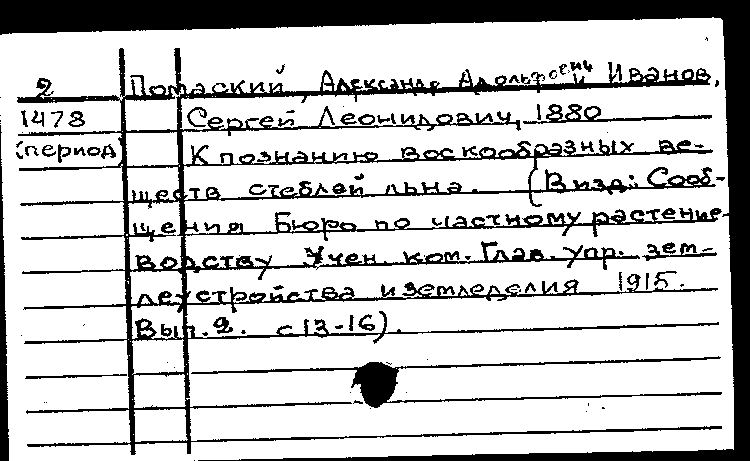 2 Потаский, Александр Адольфович и Иванов,
1478 Сергей Леонидович, 1880
(период) К познанию воскообразных ве-
ществ стеблей льна. (В изд.: Сооб-
щения Бюро по частному растение-
водству Учен. ком. Глав. упр. зем-
леустройства и земледелия 1915.
Вып. 2. с 13-16).